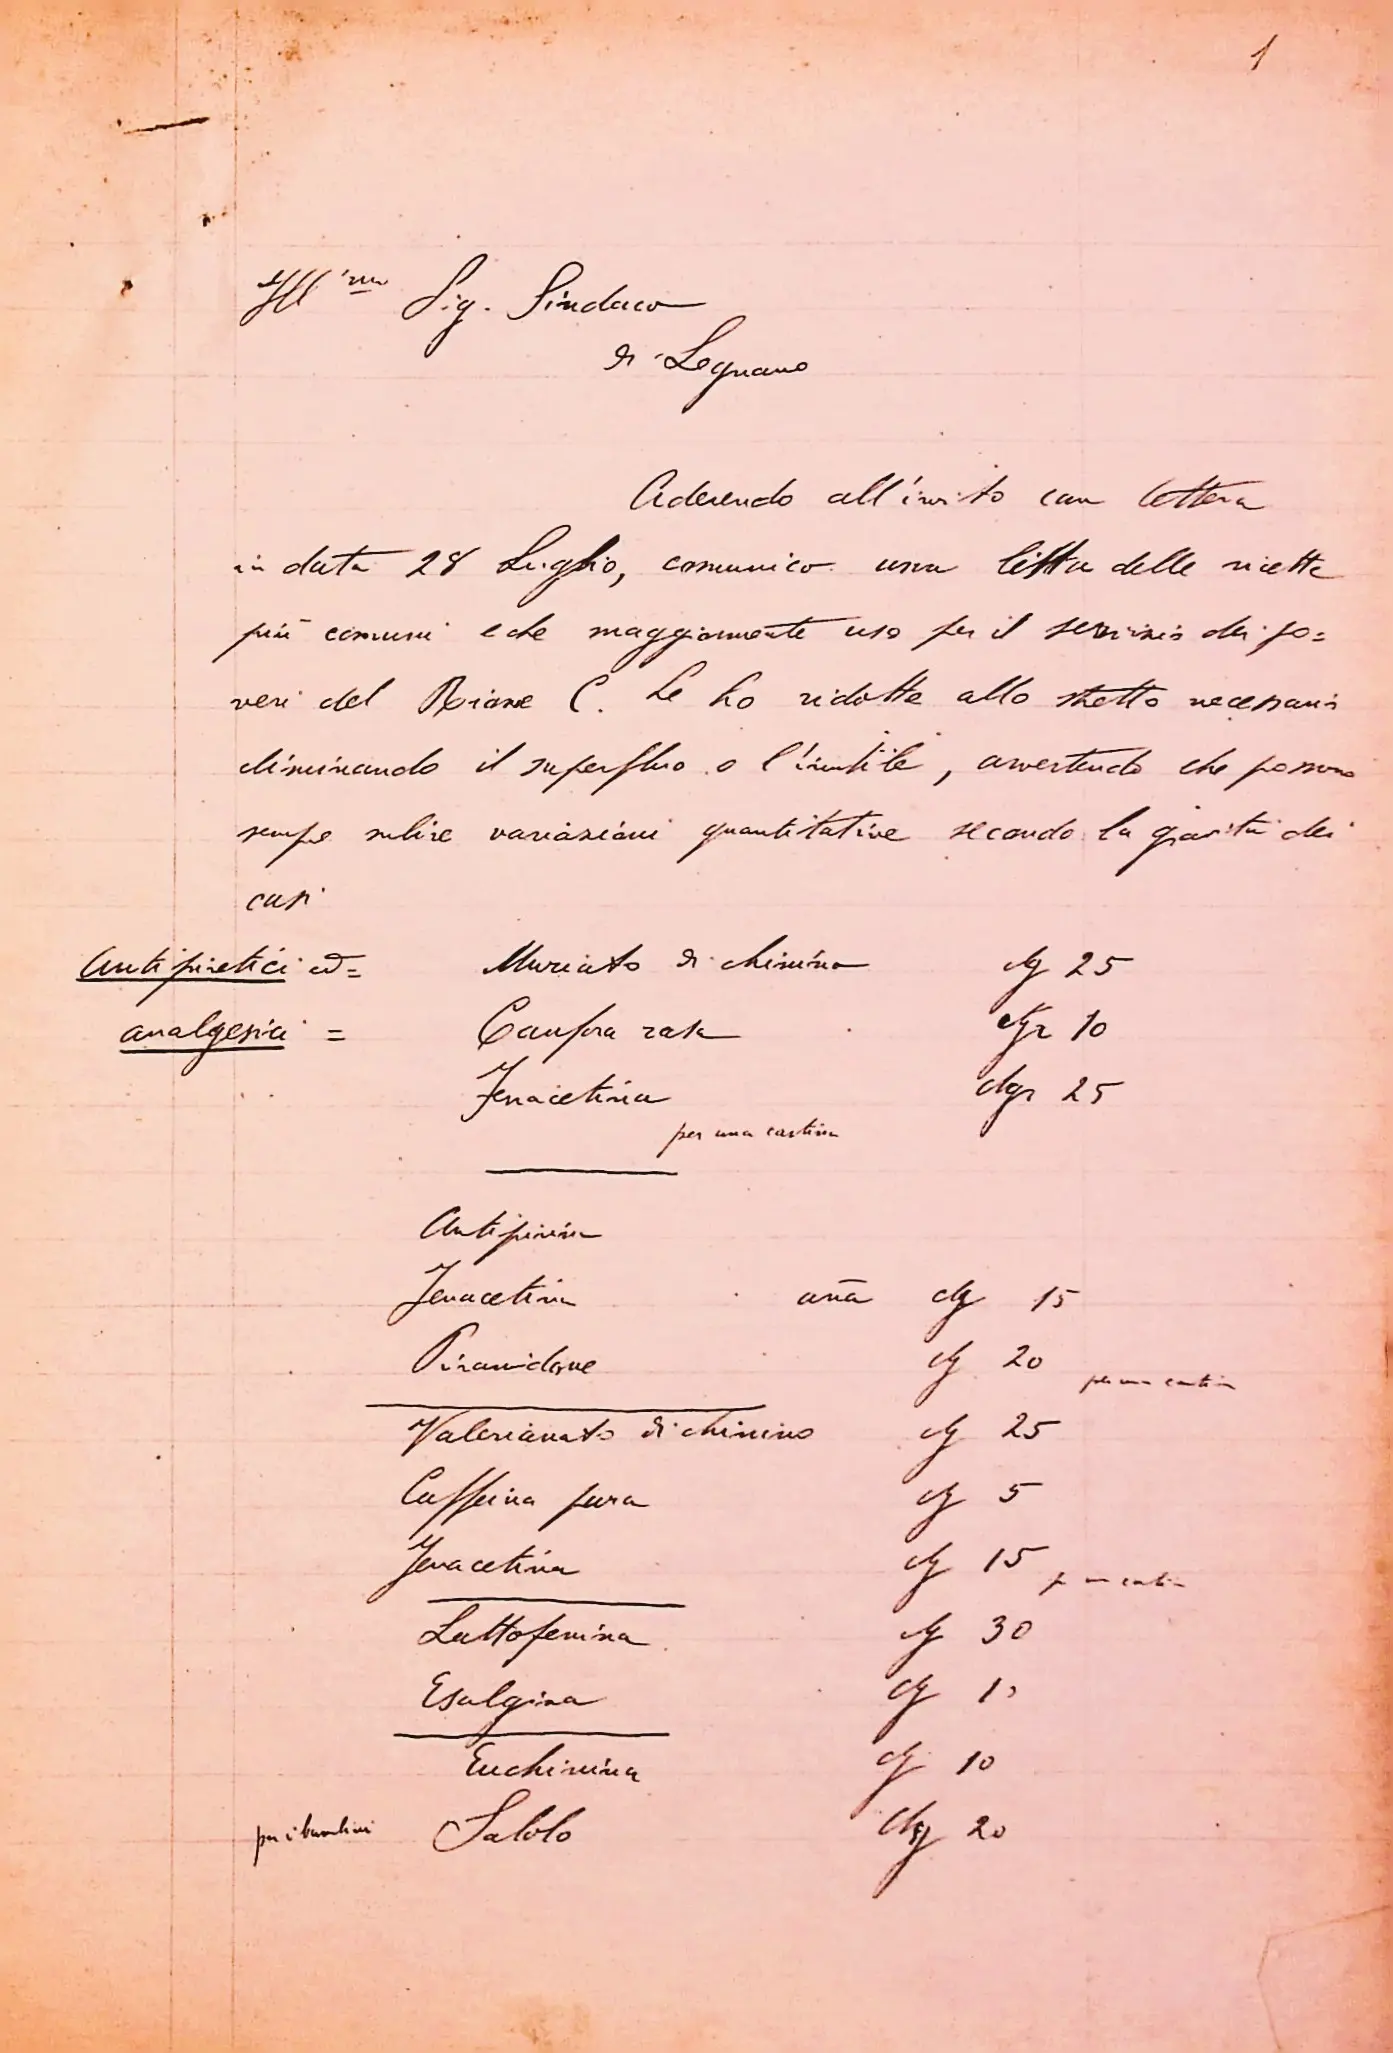 1
Ill.mo Sig. Sindaco
di Legnano
Aderendo all'invito con lettera
in data 28 Luglio, comunico una lista delle ricette
più comuni e che maggiormente uso per il servizio dei po=
veri del Rione C. Le ho ridotte allo stretto necessario
eliminando il superfluo o l'inutile, avvertendo che possono
sempre subire variazioni quantitative secondo la gravità dei
casi
Antipiretici ed= Muriato di chinino cg 25
analgesici = Canfora rasa cgr 10
Fenacetina cgr 25
per una cartina
Antipirina
Fenacetina ana cg 15
Piramidone cg 20 per una cartina
Valerianato di chinino cg 25
Caffeina pura cg 5
Fenacetina cg 15 per una cartina
Lattofenina cg 30
Esalgina cg
Euchinina cg 10
per i bambini Salolo cg 20